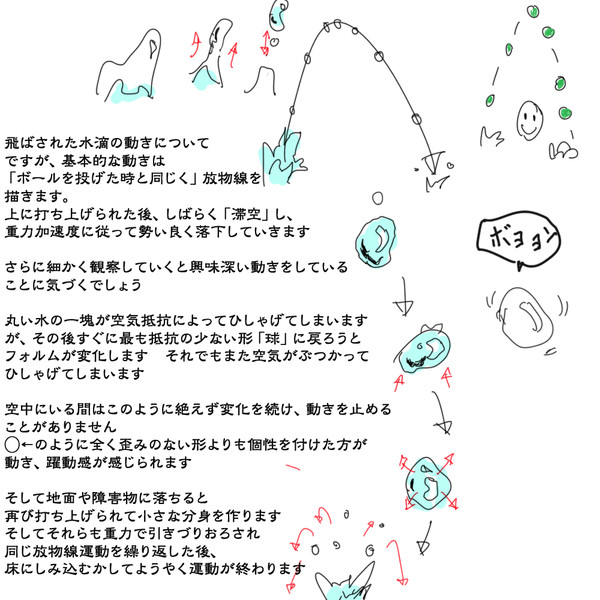 飛ばされた水滴の動きについて
ですが、基本的な動きは
「ボールを投げた時と同じく」放物線を
描きます。
上に打ち上げられた後、しばらく「滞空」し、
重力加速度に従って勢い良く落下していきます
さらに細かく観察していくと興味深い動きをしている
ことに気づくでしょう
ボヨョン
丸い水の一塊が空気抵抗によってひしゃげてしまいます
が、その後すぐに最も抵抗の少ない形「球」に戻ろうと
フォルムが変化します　それでもまた空気がぶつかって
ひしゃげてしまいます
空中にいる間はこのように絶えず変化を続け、動きを止める
ことがありません
◯←のように全く歪みのない形よりも個性を付けた方が
動き、躍動感が感じられます
そして地面や障害物に落ちると
再び打ち上げられて小さな分身を作ります
そしてそれらも重力で引きづりおろされ
同じ放物線運動を繰り返した後、
床にしみ込むかしてようやく運動が終わります